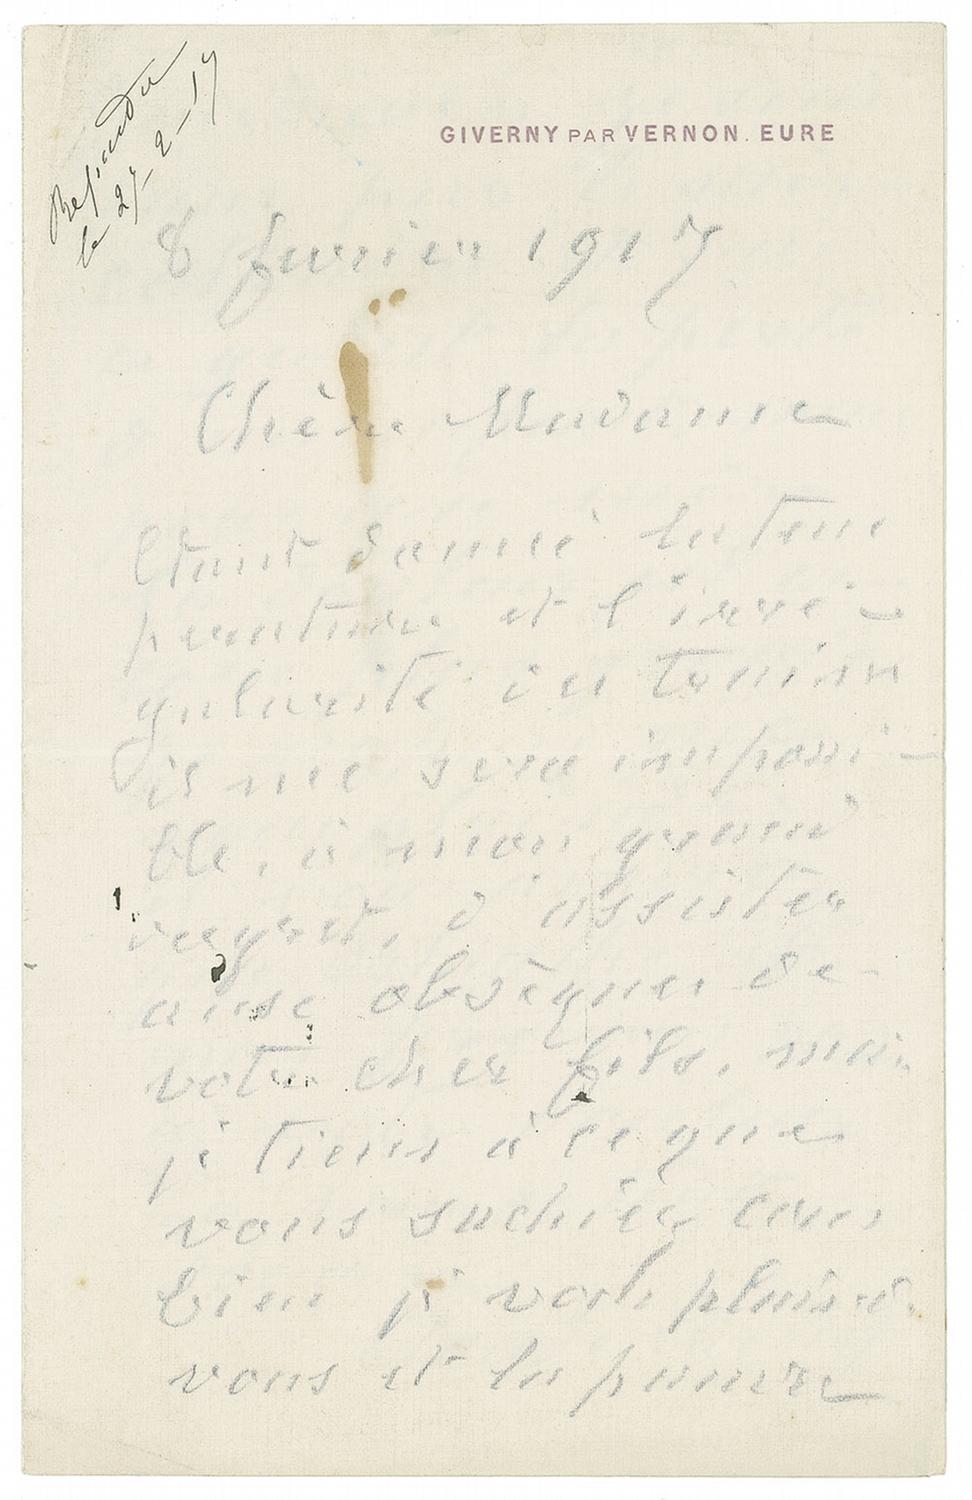 Répondu
le 27-2-17
GIVERNY PAR VERNON. EURE
8 février 1917
Chère Madame
Etant donné la tem
perature et l'irré-
gularité des trains
il me sera impossi-
ble, à mon grand
regret, d'assister
aux obsèques de
votre cher fils, mais
je tiens à ce que
vous sachiez com
bien je vous plains
vous et la pauvre